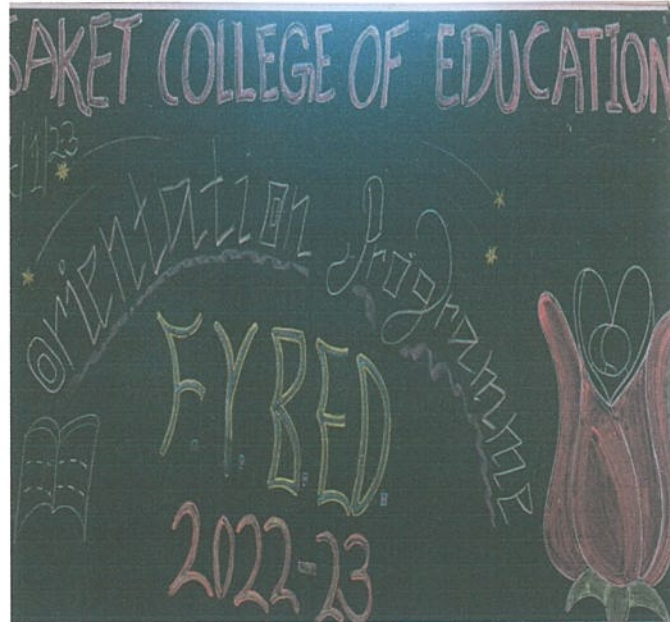 SAKET COLLEGE OF EDUCATION
/1/23
Orientation Programme
F.Y.B.ED.
2022-23